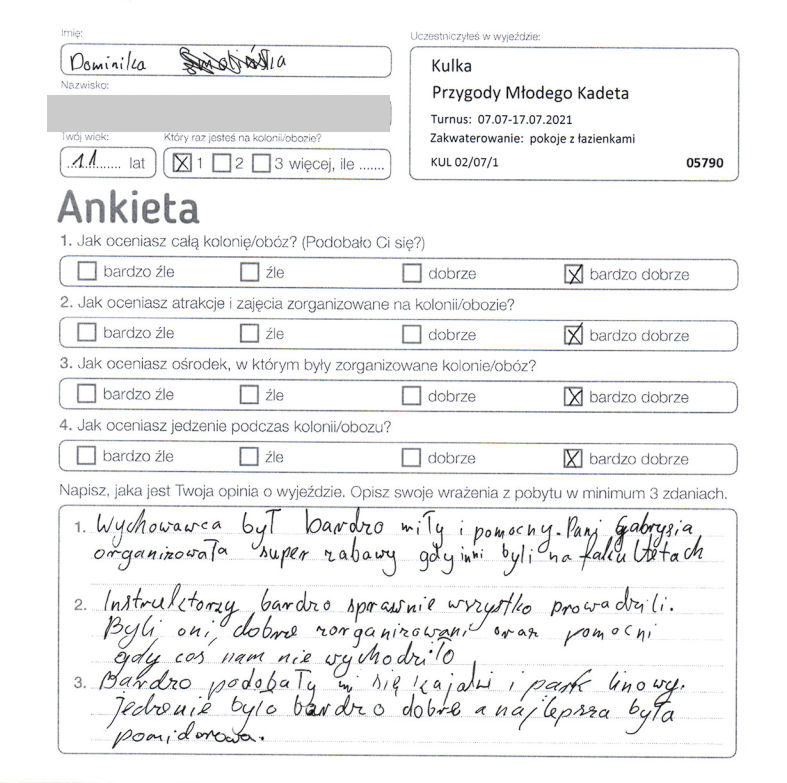 Imię:
Dominika
Uczestniczyłeś w wyjeździe:
Kulka
Przygody Młodego Kadeta
Turnus: 07.07-17.07.2021
Zakwaterowanie: pokoje z łazienkami
KUL 02/07/1 05790
Nazwisko:
Twój wiek:
11 lat
Który raz jesteś na kolonii/obozie?
1 2 3 więcej, ile .......
Ankieta
1. Jak oceniasz całą kolonię/obóz? (Podobało Ci się?)
bardzo źle źle dobrze bardzo dobrze
2. Jak oceniasz atrakcje i zajęcia zorganizowane na kolonii/obozie?
bardzo źle źle dobrze bardzo dobrze
3. Jak oceniasz ośrodek, w którym były zorganizowane kolonie/obóz?
bardzo źle źle dobrze bardzo dobrze
4. Jak oceniasz jedzenie podczas kolonii/obozu?
bardzo źle źle dobrze bardzo dobrze
Napisz, jaka jest Twoja opinia o wyjeździe. Opisz swoje wrażenia z pobytu w minimum 3 zdaniach.
1. Wychowawca był bardzo miły i pomocny. Pani Gabrysia
organizowała super zabawy gdy inni byli na fakultetach
2. Instruktorzy bardzo sprawnie wszystko prowadzili.
Byli oni dobrze zorganizowani oraz pomocni
gdy coś nam nie wychodziło
3. Bardzo podobały mi się kajaki i park linowy.
Jedzenie było bardzo dobre a najlepsza była
pomidorowa.